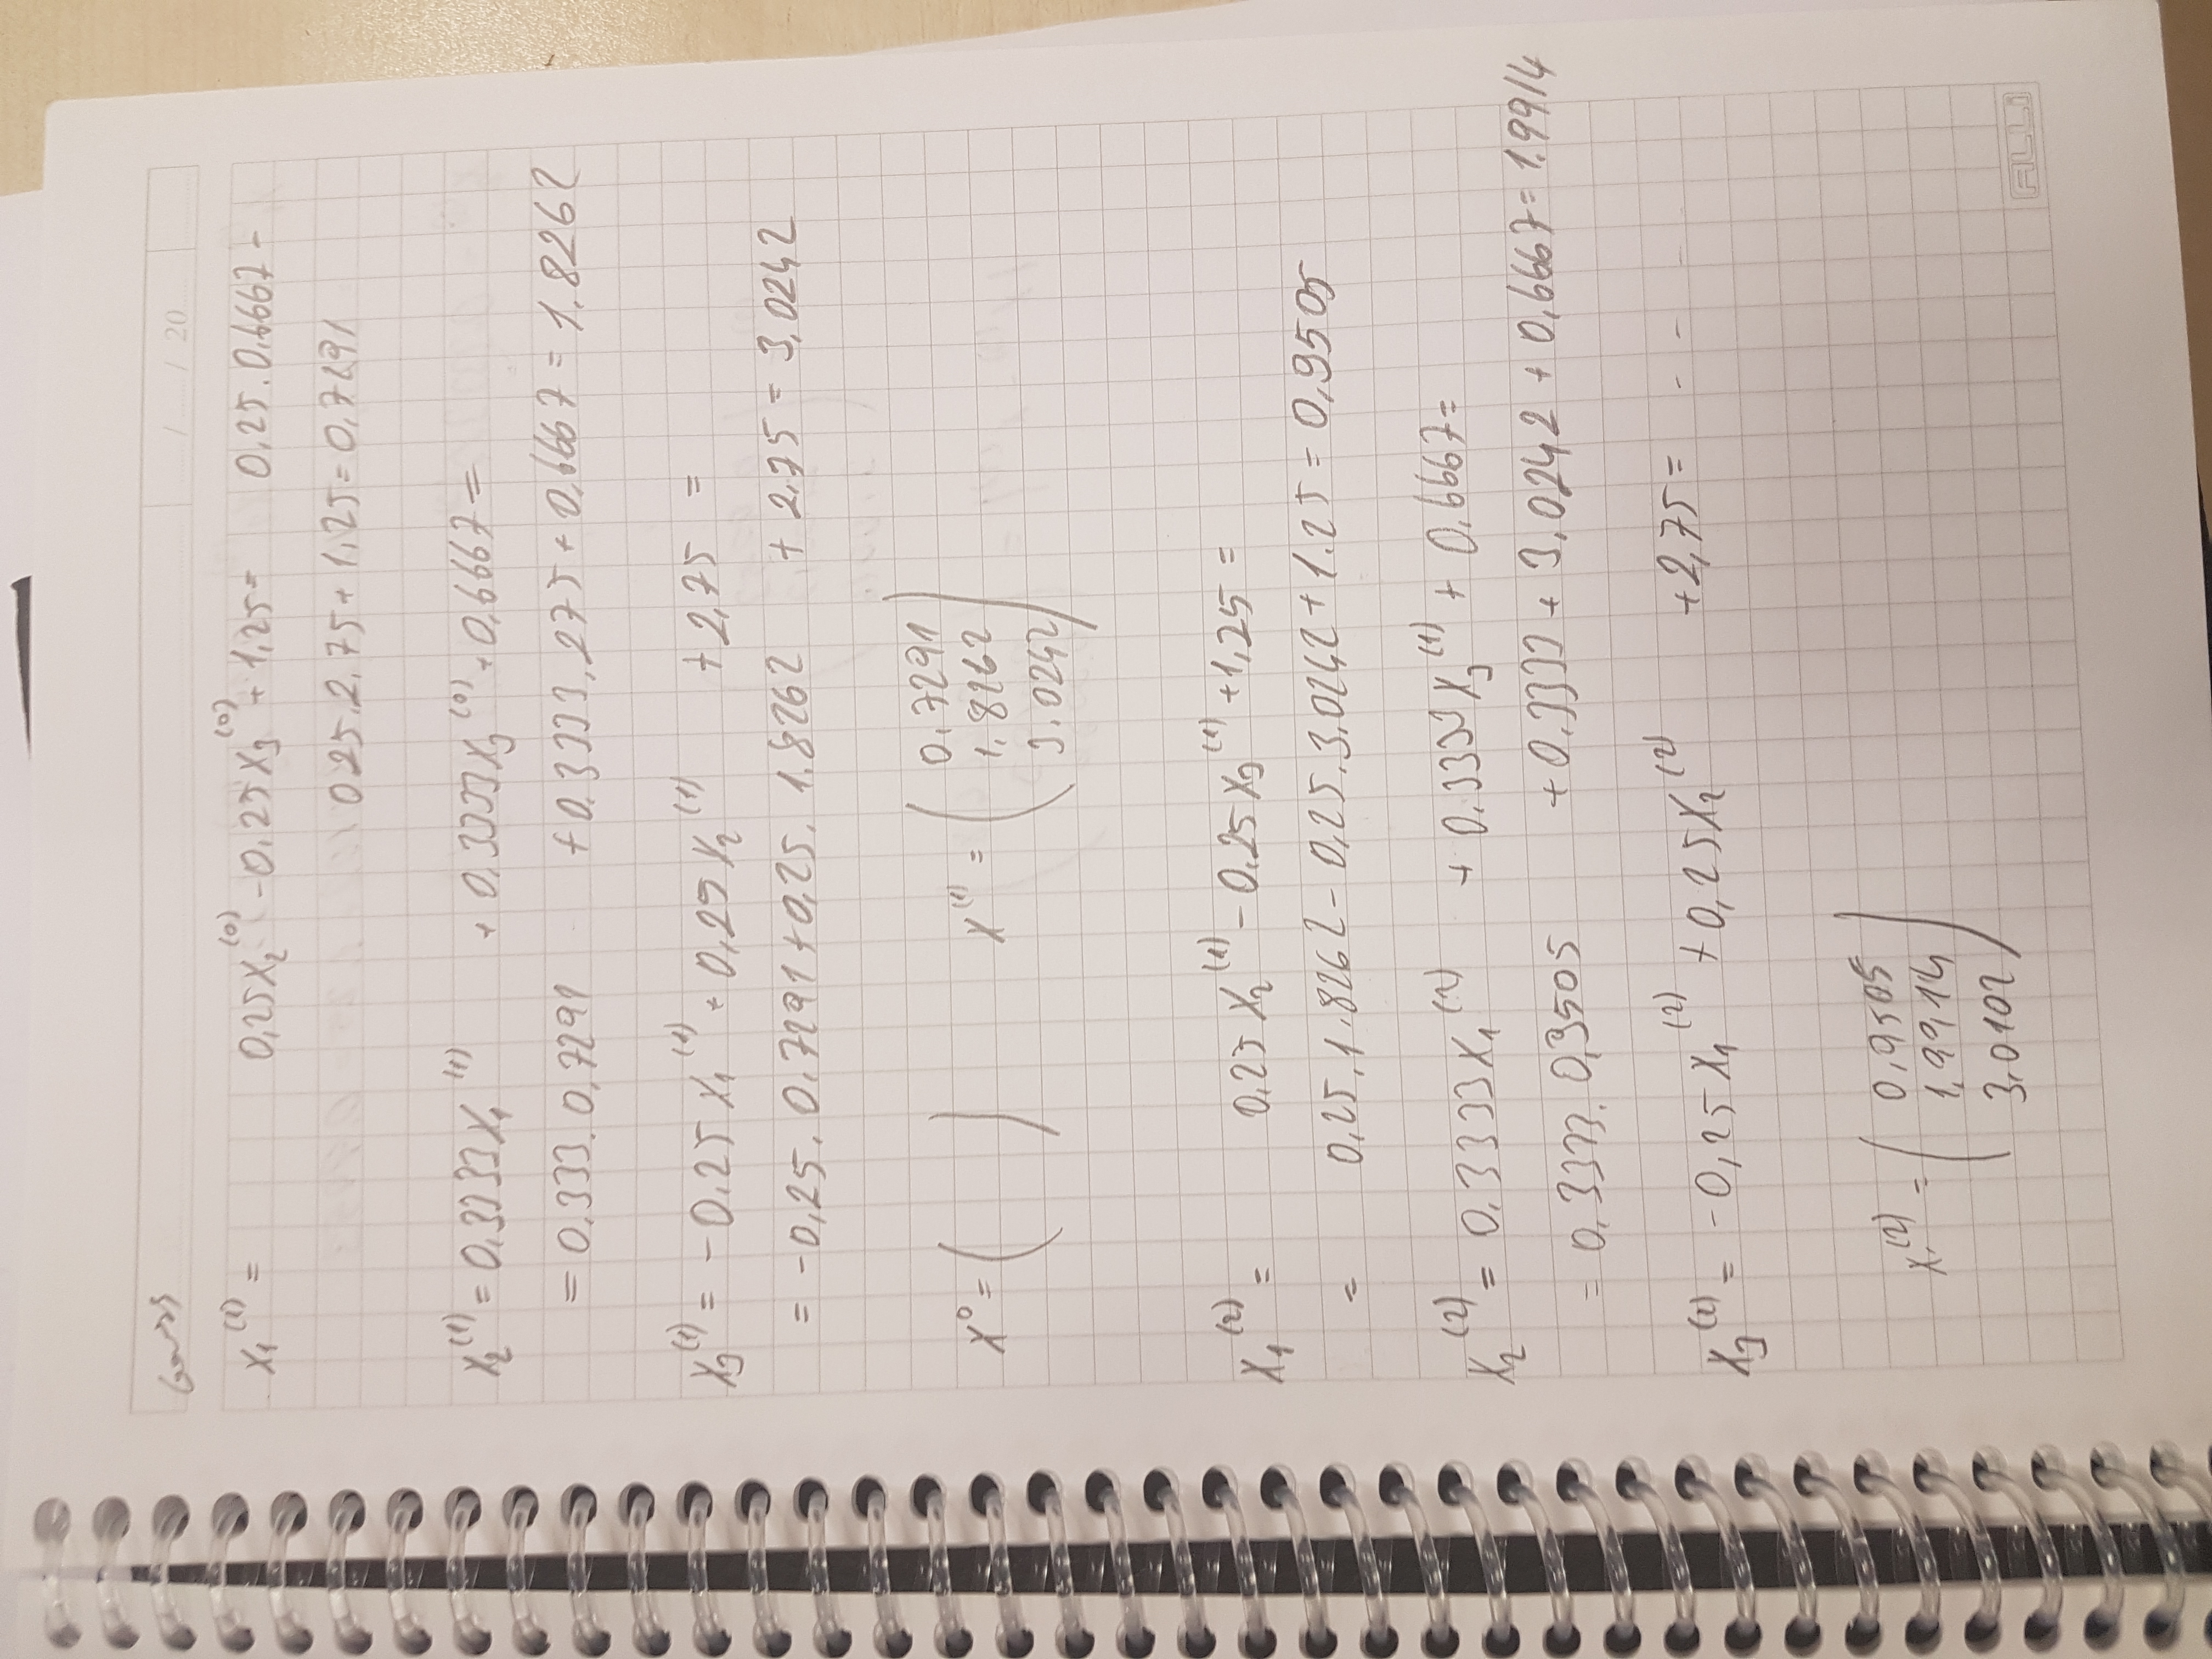 Gauss / / 20
x₁⁽¹⁾ = 0,25x₂⁽⁰⁾ - 0,25x₃⁽⁰⁾ + 1,25 = 0,25.0,6667 -
025.2,75 + 1,25 = 0,7291
x₂⁽¹⁾ = 0,3333x₁⁽¹⁾ + 0,3333x₃⁽⁰⁾ + 0,6667 =
= 0,333.0,7291 + 0,3333.275 + 0,6667 = 1.8262
x₃⁽¹⁾ = -0,25x₁⁽¹⁾ + 0,25x₂⁽¹⁾ + 2,75 =
= -0,25.0,7291 + 0,25.1.8262 + 2,75 = 3,0242
x⁰ = ( ) x⁽¹⁾ = ( 0,7291
1,8262
3.0242 )
x₁⁽²⁾ = 0,25x₂⁽¹⁾ - 0,25x₃⁽¹⁾ + 1,25 =
= 0,25.1.8262 - 0,25.3,0242 + 1.25 = 0,9505
x₂⁽²⁾ = 0,3333x₁⁽²⁾ + 0,3333x₃⁽¹⁾ + 0,6667 =
= 0,3333.0,9505 + 0,3333 + 3,0242 + 0,6667 = 1.9914
x₃⁽²⁾ = -0,25x₁⁽²⁾ + 0,25x₂⁽²⁾ + 2,75 = - - - -
x⁽²⁾ = ( 0,9505
1,9914
3,0102 )
ALLi